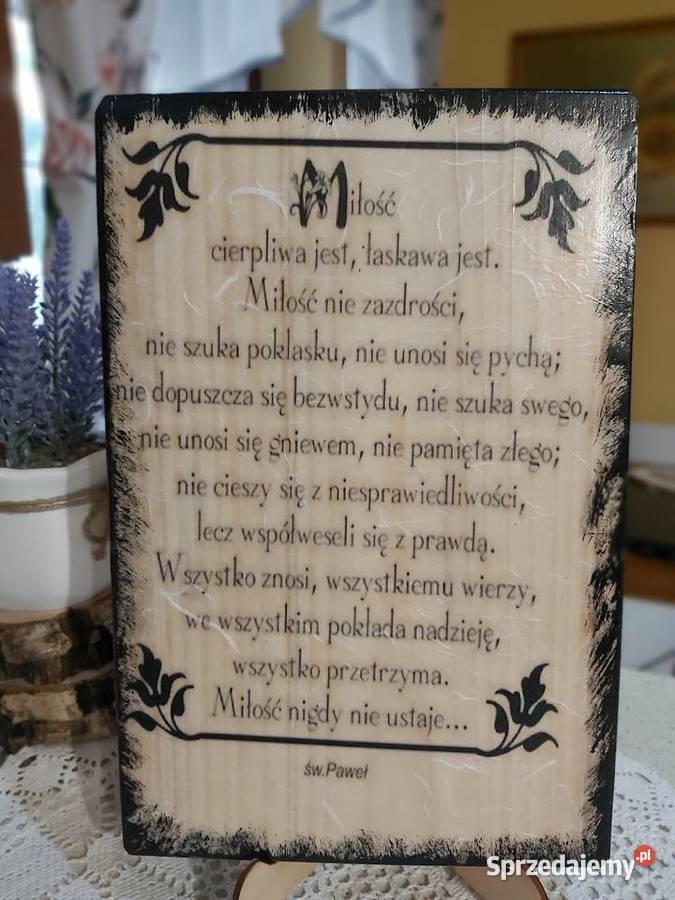 Miłość
cierpliwa jest, łaskawa jest.
Miłość nie zazdrości,
nie szuka poklasku, nie unosi się pychą;
nie dopuszcza się bezwstydu, nie szuka swego,
nie unosi się gniewem, nie pamięta złego;
nie cieszy się z niesprawiedliwości,
lecz współweseli się z prawdą.
Wszystko znosi, wszystkiemu wierzy,
we wszystkim pokłada nadzieję,
wszystko przetrzyma.
Miłość nigdy nie ustaje...
św.Paweł
Sprzedajemy.pl